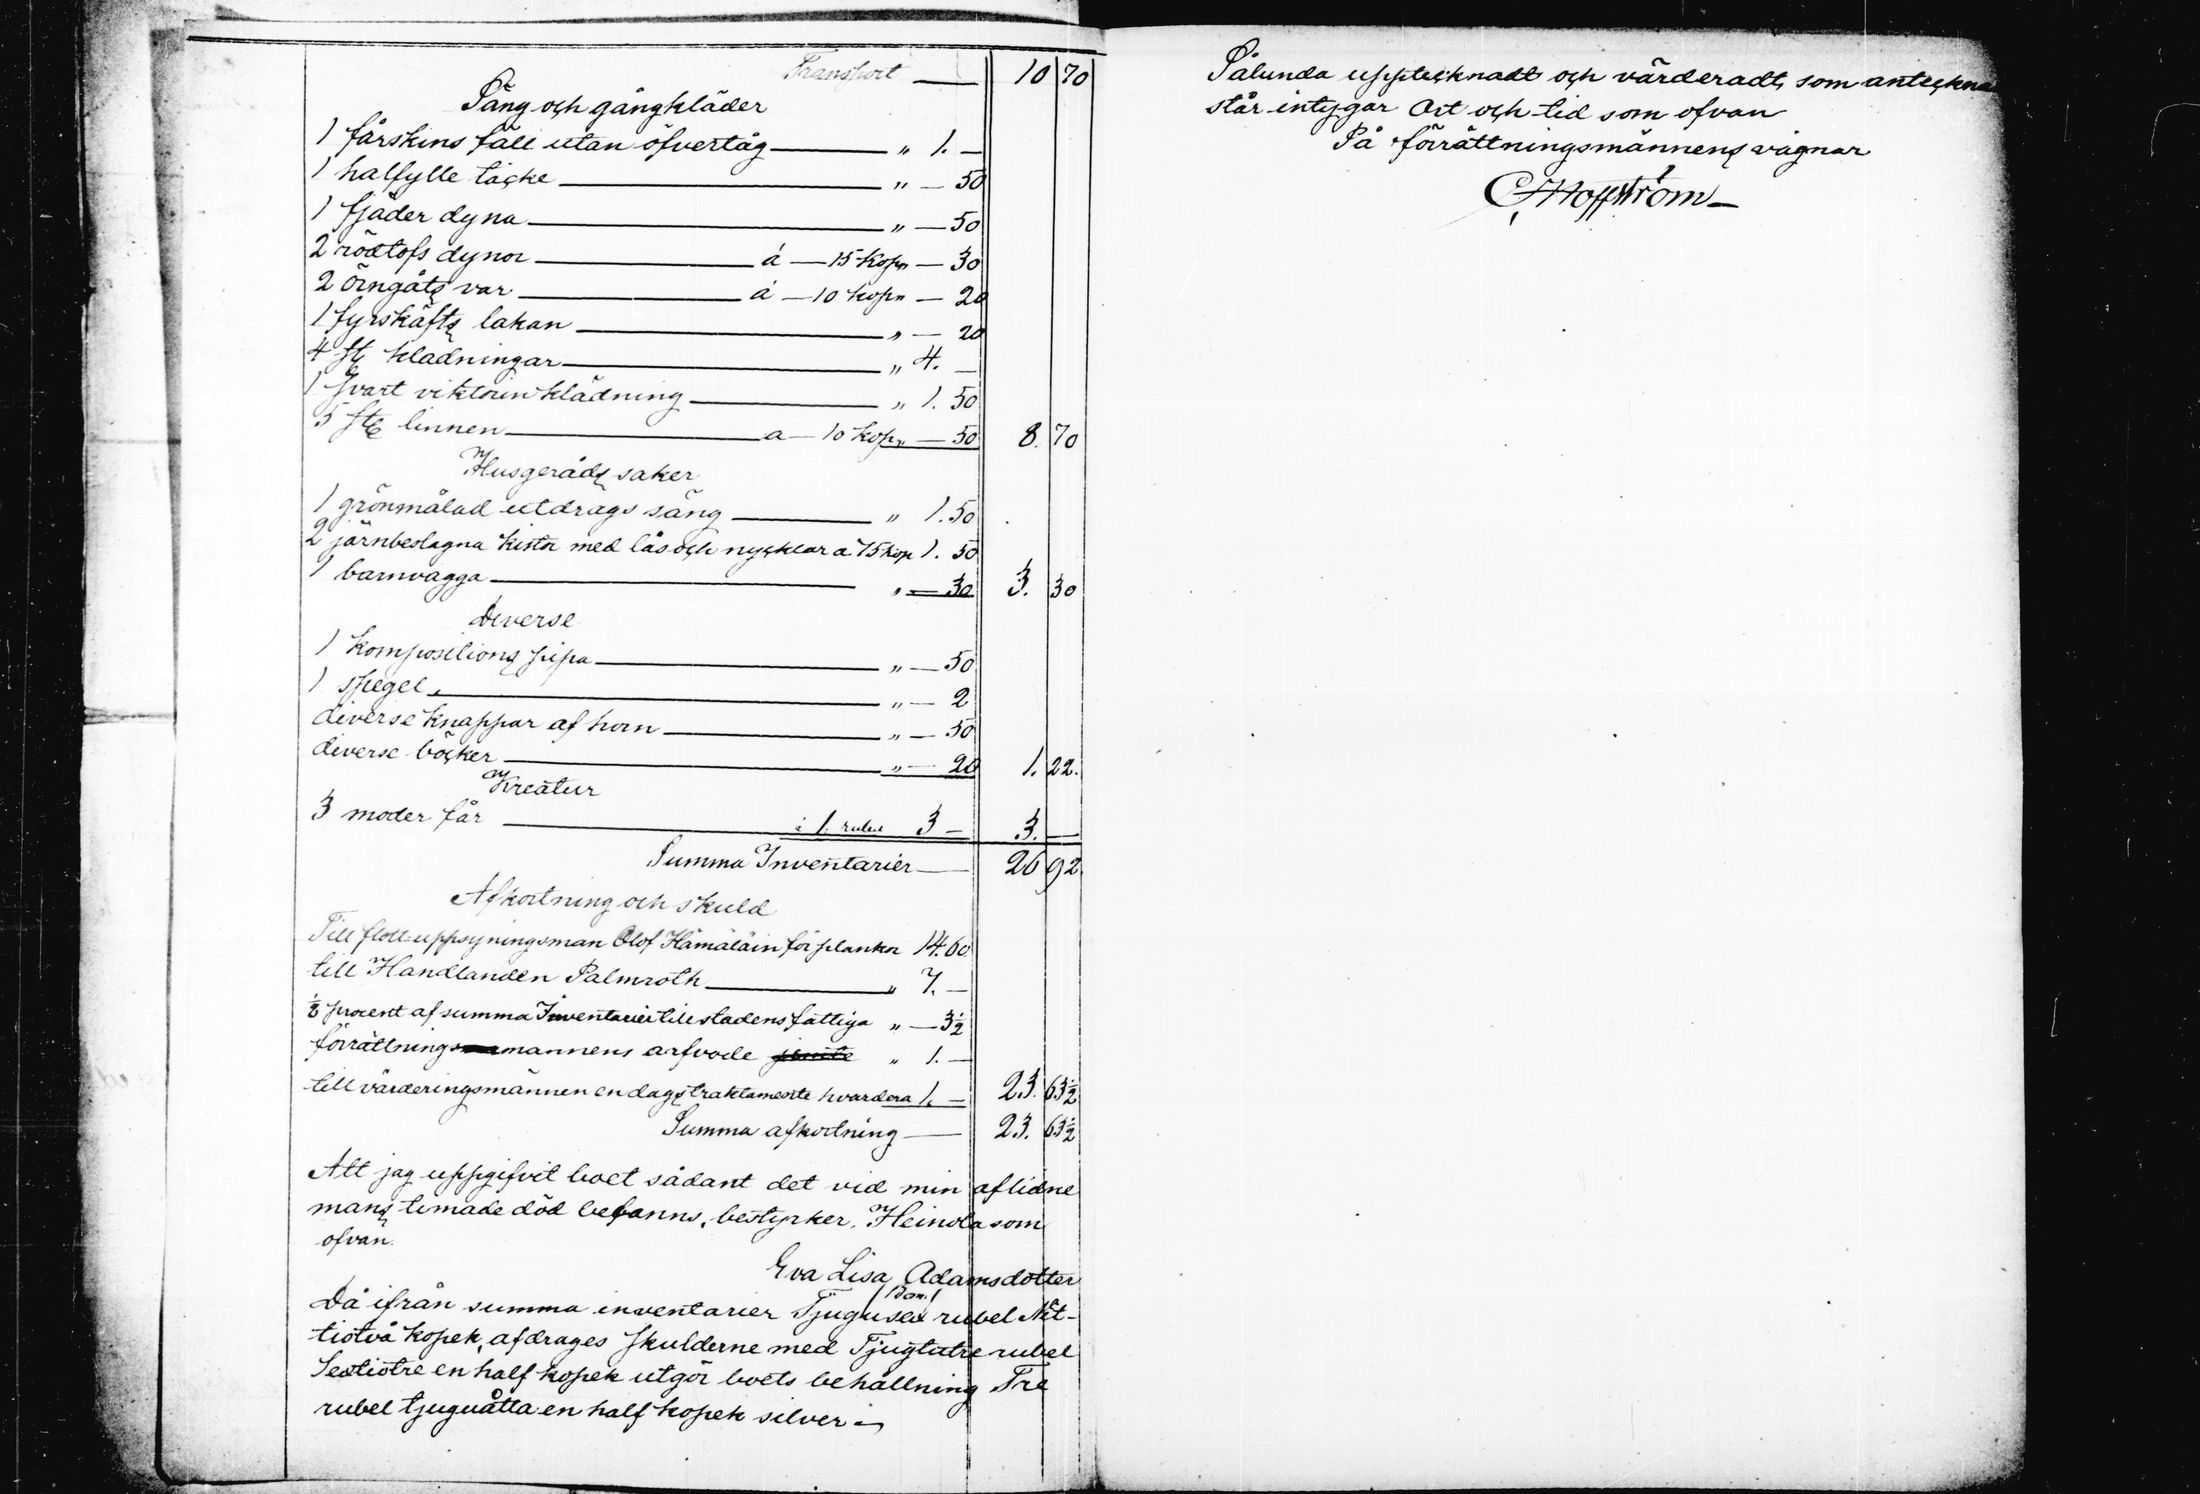 Transport — 10 70
Säng och gångkläder
1 fårskins fäll utan öfvertåg — „ 1. —
1 halfylle täcke — „ — 50
1 fjäder dyna — „ — 50
2 rödtofs dynor — á — 15 kopr — 30
2 örngåts var — á — 10 kopr — 20
1 fyrskäfts lakan — „ — 20
4 st klädningar — „ 4. —
1 svart viktorin klädning — „ 1. 50
5 st linnen — a — 10 kopr — 50 8. 70
Husgeråds saker
1 grönmålad utdrags säng — „ 1. 50
2 järnbeslagna kistor med lås och nycklar a 75 kop 1. 50
1 barnvagga — „ — 30 3. 30
Diverse
1 kompositions pipa — „ — 50
1 spegel — „ — 2
diverse knappar af horn — „ — 50
diverse böcker — „ — 20 1. 22.
Kreatur
3 moder får — á 1. rubel 3 — 3. —
Summa Inventarier — 26 92.
Afkortning och skuld
Till flott-uppsyningsman Olof Hämäläin för plankor 14. 60
till Handlanden Palmroth — „ 7. —
½ procent af summa Inventarier till stadens fattiga „ — 3½
förrättningsmannens arfvode „ 1. —
till värderingsmännen en dags traktamente hvardera 1. — 23. 63½
Summa afkortning — 23. 63½
Att jag uppgifvit boet sådant det vid min aflidne
mans timade död befanns, bestyrker. Heinola som
ofvan.
Eva Lisa Adamsdotter
Då ifrån summa inventarier Tjugusex rubel Nit-
tiotvå kopek, afdrages skulderne med Tjugutre rubel
Sextiotre en half kopek utgör boets behållning Tre
rubel tjuguåtta en half kopek silver —
Sålunda upptecknadt och värderadt, som anteckna
står intygar Ort och tid som ofvan
På förrättningsmännens vägnar
Hoffström